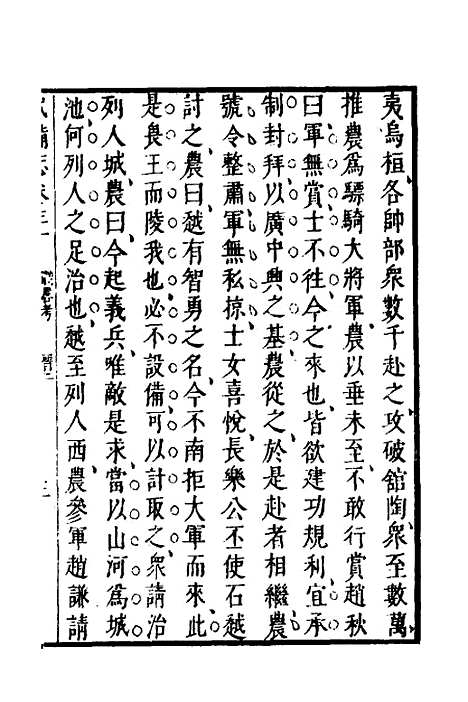 夷烏桓各帥部衆數千赴之攻破舘陶衆至數萬
推農爲驃騎大將軍農以垂未至不敢行賞趙秋
曰軍無賞士不往今之來也皆欲建功規利宜承
制封拜以廣中興之基農從之於是赴者相繼農
號令整肅軍無私掠士女喜悅長樂公丕使石越
討之農曰越有智勇之名今不南拒大軍而來此
是畏王而陵我也必不設備可以計取之衆請治
列人城農曰今起義兵唯敵是求當以山河爲城
池何列人之足治也越至列人西農參軍趙謙請
備志卷三
考
三